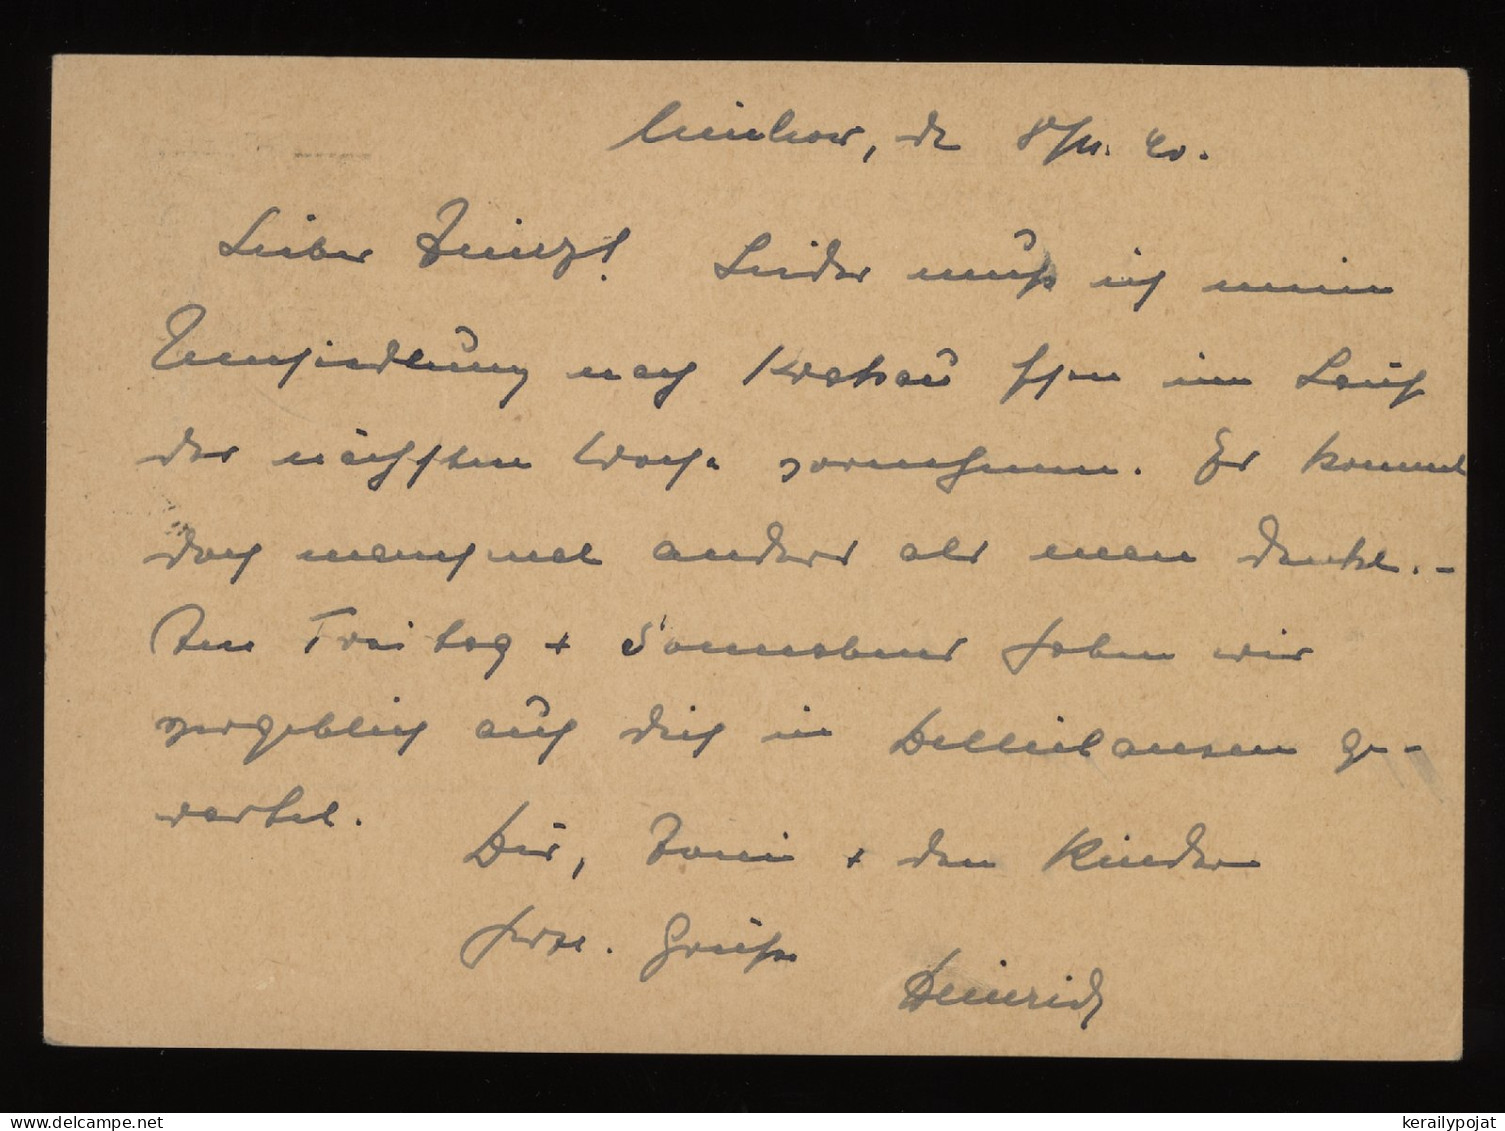 den 8/11. 40.
Lieber Heinz! Leider muß ich meine
nach Krakau schon im Lauf
der nächsten Woche vornehmen. Es kommt
doch manchmal anders als man denkt. -
Am Freitag + Sonnabend haben wir
vergeblich auf dich in ge-
wartet.
Dir, Toni + den Kindern
herzl. Grüße
Heinrich
kerailypojat